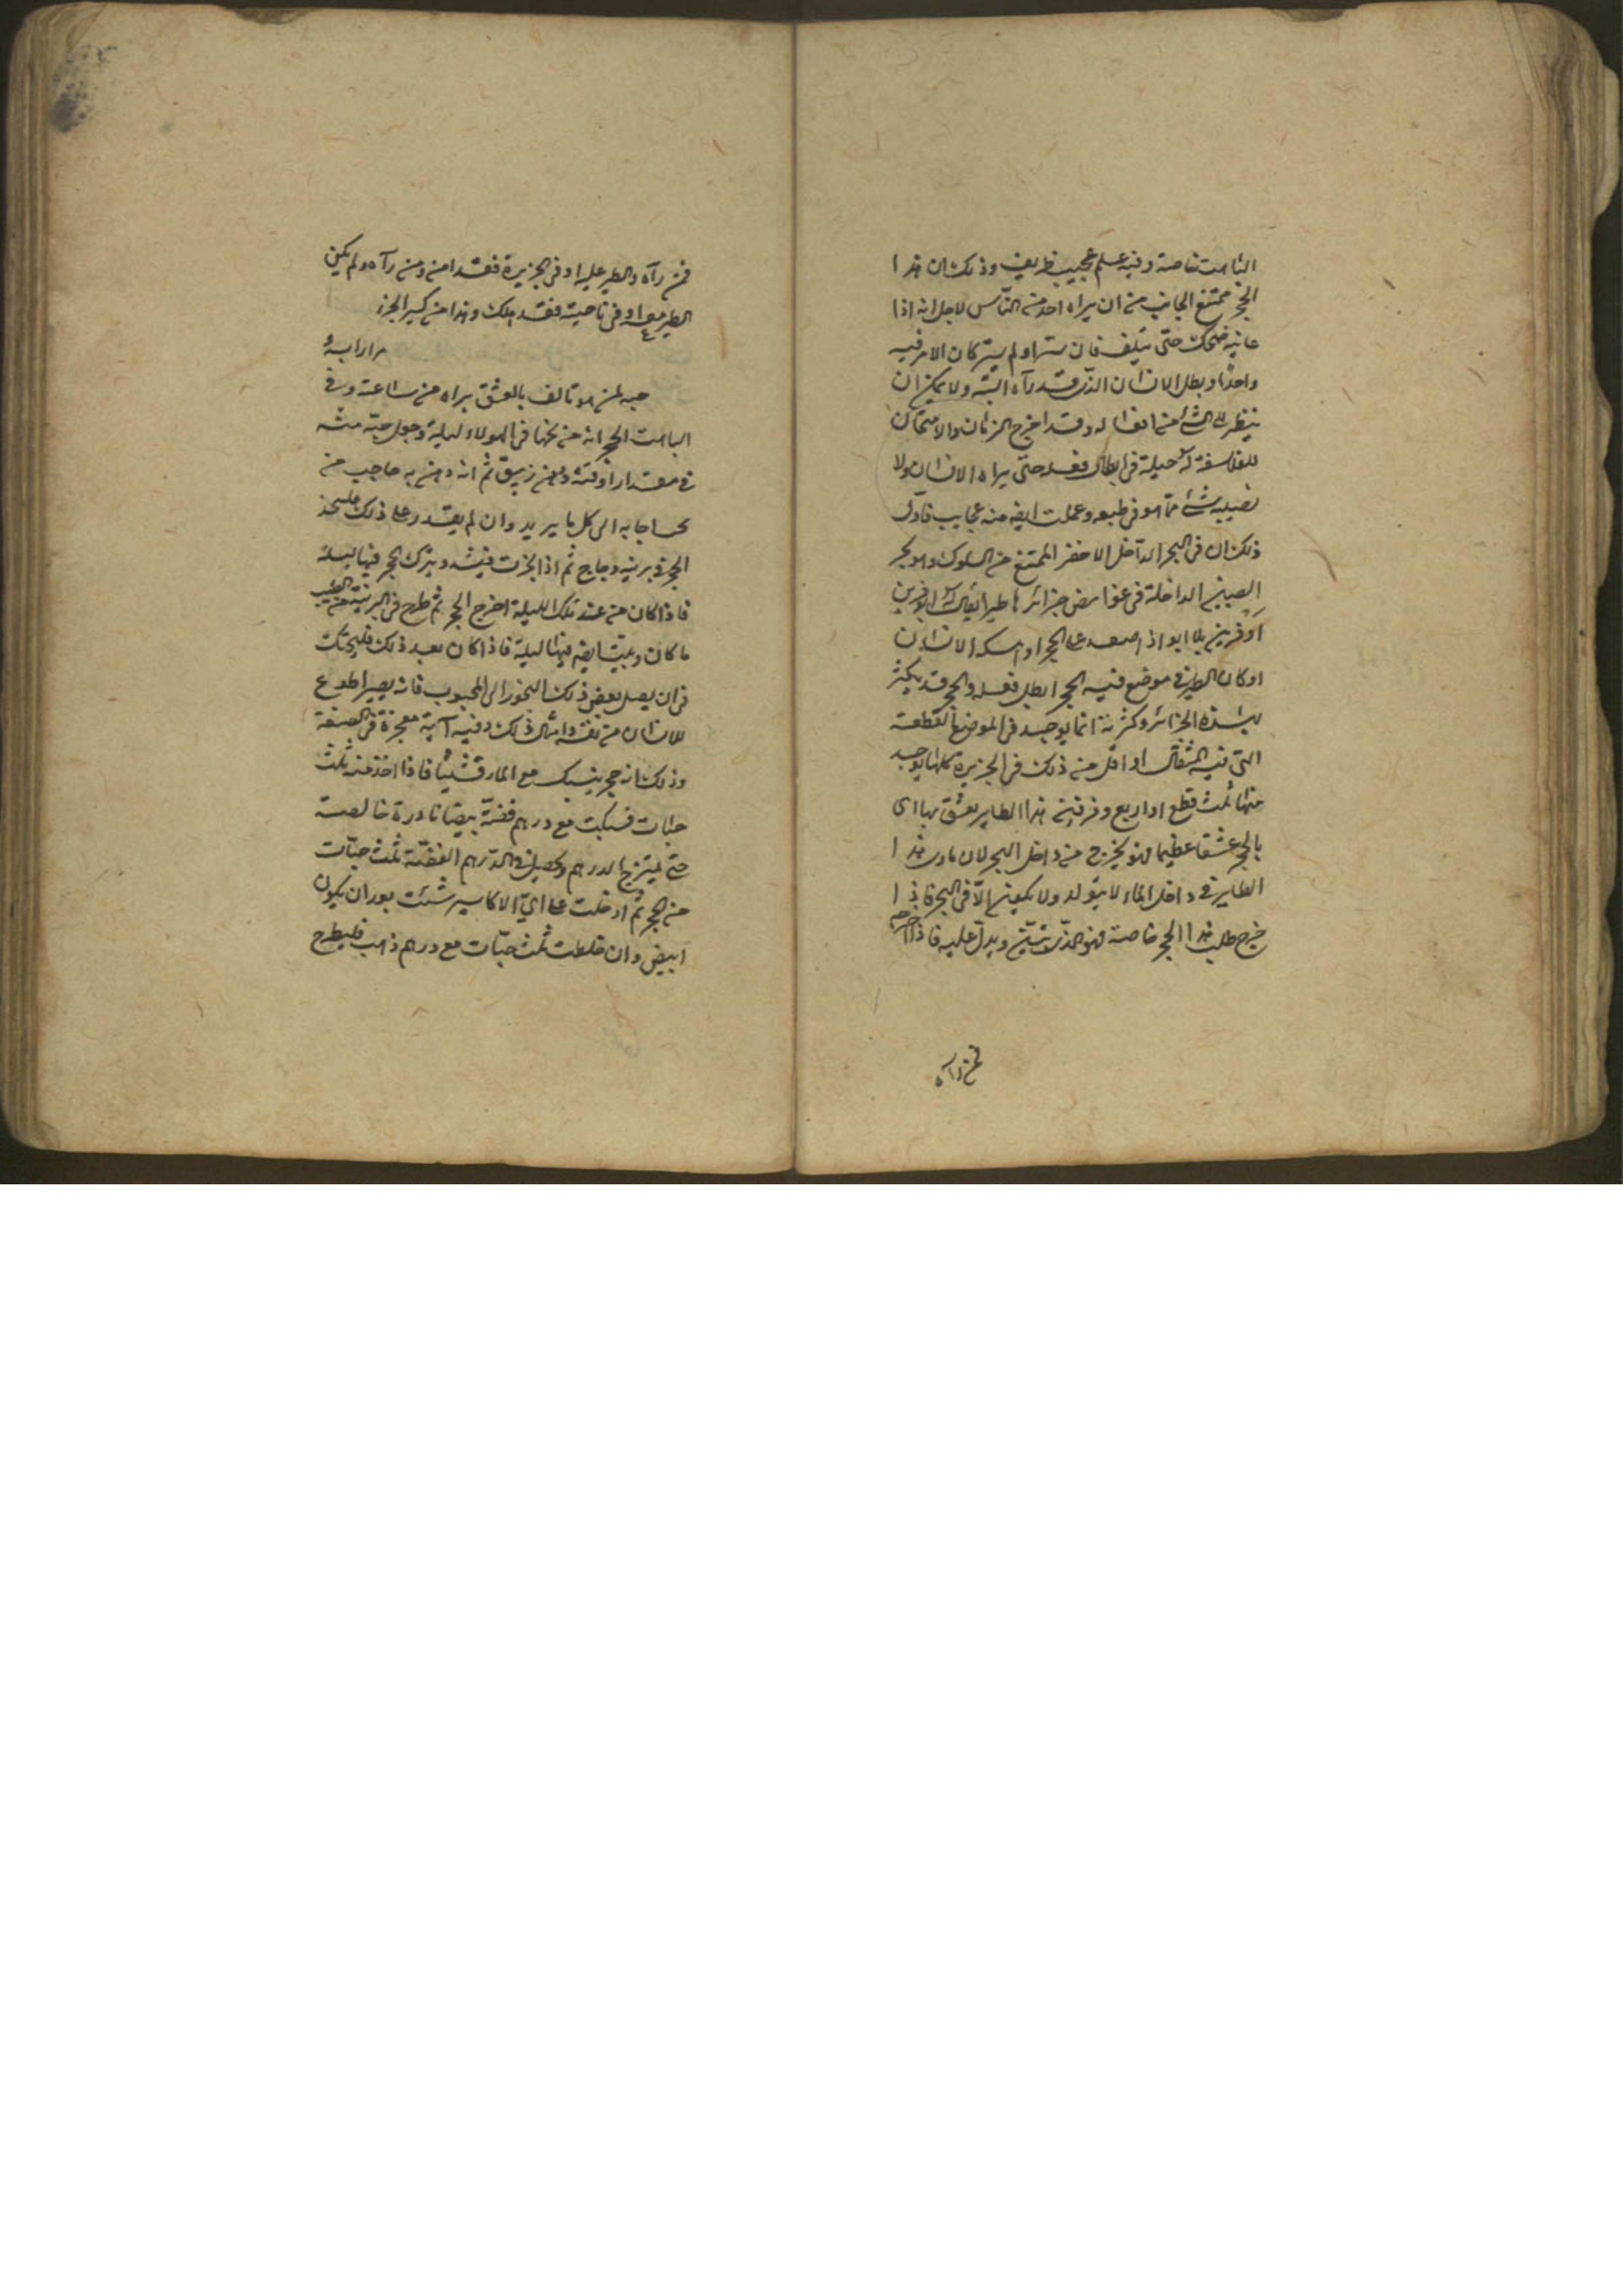 الباهت خاصة وفيه علم عجيب ظريف وذلك ان هذا
الحجر ممتنع الجانب من ان يراه احد من الناس لاجل انه اذا
عاينه ضحك حتى يتلف فان ستر او لم يستر كان الامر فيه
واحدًا وبطل الانسان الذى قد رآه البتة ولا يمكن ان
ينظر الى الشئ من افعاله وقد اخرج الزمان والامتحان
للفلاسفة له حيلة فى ابطال فعله حتى يراه الانسان ولا
يصيبه شئ مما هو فى طبعه وعملت ايضا منه عجايب فاول
ذلك ان فى البحر الداخل الاخضر الممتنع من السلوك وهو بحر
الصين الداخلة فى غوامض جزائرها طير يقال له الافرين
او فرين بلا ابو اذا صعد على الحجر او امسكه الانسان
او كان الطير فى موضع فيه الحجر ابطل فعله والحجر قد يكثر
بهذه الجزائر وكثرته انما يوجد فى الموضع القطعة
التى فيه المثقال او اقل من ذلك فى الجزيرة كلها يوجد
منها ثلث قطع او اربع وفرفين هذا الطاير يعشق بها اى
بالحجر عشقا عظيما فهو يخرج من داخل البحر لان ماوى هذا
الطاير فى داخل الماء لا يتولد ولا يكون الّا فى البحر فاذا
خرج طلب هذا الحجر خاصة فهو الذى يبين ويدل عليه فاذا اخرجه
فمن رآه
فمن رآه والطير عليه او فى الجزيرة فقد امن ومن رآه ولم يكن
الطير معه او فى ناحيته فقد هلك وهذا من كبير الحرز
حبه لمن هو تالف بالعشق براه من ساعته وفى
الباهت الحجر انه من نجمها فى الهولاء ليلة وجعل حبّة منه
فى مقدار اوقية دهن زيبق ثم انه دهن به حاجب من
اجابه الى كل ما يريد وان لم يقدر على ذلك فليتخذ
الحجر فى برنية زجاج ثم اذا بخرت فيشد ويترك الحجر فيها ليلة
فاذا كان من عند تلك الليلة اخرج الحجر ثم طرح فى البرنية من الطيب
ما كان ويبيت ايضا فيها ليلة فاذا كان بعد ذلك فليحتك
فى ان يصل بعض ذلك البخور الى المحبوب فانه يصير اطوع
للانسان من نفسه وامثال ذلك وفيه آية معجزة فى الصنعة
وذلك انه حجر ينسبك مع النار قشيئا فاذا اخذ منه ثلث
حبات فسبكت مع درهم فضة بيضا نادرة خالصة
حتى يمتزج الدرهم ويحصل فى الدرهم الفضة ثلث حبّات
من الحجر ثم ادخلت على اىّ الاكاسير شئت بعد ان يكون
ابيض وان خلطت ثلث حبّات مع درهم ذهب فليطرح